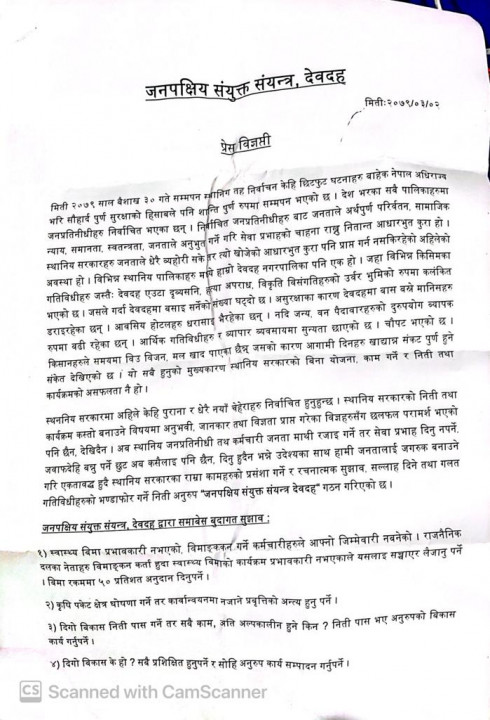 जनपक्षिय संयुक्त संयन्त्र, देवदह
मिती:२०७९/०३/०२
प्रेस विज्ञप्ती
मिती २०७९ साल बैशाख ३० गते सम्पमन स्थानिग तह निर्वाचन केहि छिटफुट घटनाहरु बाहेक नेपाल अधिराज्य
भरि सौहार्द पुर्ण सुरक्षाको हिसाबले पनि शान्ति पुर्ण रुपमा सम्पमन भएको छ । देश भरका सबै पालिकाहरुमा
जनप्रतिनीधीहरु निर्वाचित भएका छन् । निर्वाचित जनप्रतिनीधीहरु बाट जनताले अर्थपुर्ण परिर्वतन, सामाजिक
न्याय, समानता, स्वतन्त्रता, जनताले अनुभुत गर्ने गरि सेवा प्रभाहको चाहना राख्नु नितान्त आधारभुत कुरा हो ।
स्थानिय सरकारहरु जनताले धेरै व्होरी सके तर त्यो खोजेको आधारभुत कुरा पनि प्राप्त गर्न नसकिरहेको अहिलेको
अवस्था हो । विभिन्न स्थानिय पालिकाहरु मध्ये हाम्रो देवदह नगरपालिका पनि एक हो । जहा विभिन्न किसिमका
गतिविधीहरु जस्तै: देवदह एउटा दुव्यसनि, हत्या अपराध, विकृति बिसंगतिहरुको उर्वर भुमिको रुपमा कलंकित
भएको छ । जसले गर्दा देवदहमा बसाइ सर्नेको संख्या घट्दो छ । असुरक्षाका कारण देवदहमा बास बस्ने मानिसहरु
डराइरहेका छन् । आवसिय होटलहरु धरासाइ भैरहेका छन् । नदि जन्य, वन पैदावारहरुको दुरुपयोग ब्यापक
रुपमा बढी रहेका छन् । आर्थिक गतिविधीहरु र ब्यापार ब्यवसायमा सुन्यता छाएको छ । चौपट भएको छ ।
किसानहरुले समयमा विउ विजन, मल खाद पाएका छैन् जसको कारण आगामी दिनहरु खाद्यान्न संकट पुर्ण हुने
संकेत देखिएको छ । यो सबै हुनुको मुख्यकारण स्थानिय सरकारको बिना योजना, काम गर्ने र निती तथा
कार्यक्रमको असफलता नै हो ।
स्थननिय सरकारमा अहिले केहि पुराना र धेरै नयाँ चेहेराहरु निर्वाचित हुनुहुन्छ । स्थानिय सरकारको निती तथा
कार्यक्रम कस्तो बनाउने विषयमा अनुभवी, जानकार तथा विज्ञता प्राप्त गरेका विज्ञहरुसँग छलफल परामर्श भएको
पनि छैन, देखिदैन । अब स्थानिय जनप्रतिनीधी तथ कर्मचारी जनता माथी रजाइ गर्ने तर सेवा प्रभाह दिनु नपर्ने,
जवाफदेहि बन्नु पर्ने छुट अब कसैलाइ पनि छैन, दिनु हुदैन भन्ने उदेश्यका साथ हामी जनतालाई जगरुक बनाउने
गरि एकतावद्ध हुदै स्थानिय सरकारका राम्रा कामहरुको प्रसंशा गर्ने र रचनात्मक सुझाव, सल्लाह दिने तथा गलत
गतिविधीहरुको भण्डाफोर गर्ने निती अनुरुप "जनपक्षिय संयुक्त संयन्त्र देवदह" गठन गरिएको छ ।
जनपक्षिय संयुक्त संयन्त्र, देवदह द्वारा समाबेस बुदागत सुझाव :
१) स्वास्थ्य विमा प्रभावकारी नभएको, विमाङ्ककन गर्ने कर्मचारीहरुले आफ्नो जिम्मेवारी नवनेको । राजनैनिक
दलका नेताहरु विमाङ्कन कर्ता हुदा स्वास्थ्य विमाको कार्यक्रम प्रभावकारी नभएकाले यसलाइ सञ्चाएर लैजानु पर्ने
। विमा रकममा ५० प्रतिशत अनुदान दिनुपर्ने ।
२) कृषि पकेट क्षेत्र घोषणा गर्ने तर कार्वान्वयनमा नजाने प्रवृत्तिको अन्त्य हुनु पर्ने ।
३) दिगो बिकास निती पास गर्ने तर सबै काम, अति अल्पकालीन हुने किन ? निती पास भए अनुरुपको बिकास
कार्य गर्नुपर्ने ।
४) दिगो बिकास के हो ? सबै प्रशिक्षित हुनुपर्ने र सोहि अनुरुप कार्य सम्पादन गर्नुपर्ने ।
CS Scanned with CamScanner